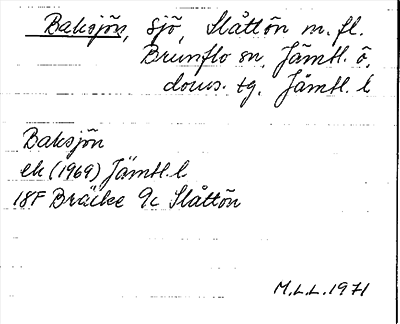 Baksjön, sjö, Slåttön m. fl.
Brunflo sn, Jämtl. ö.
doms. tg. Jämtl. l
Baksjön
ek (1969) Jämtl. l
18F Bräcke 9c Slåttön
M.L.L. 1971